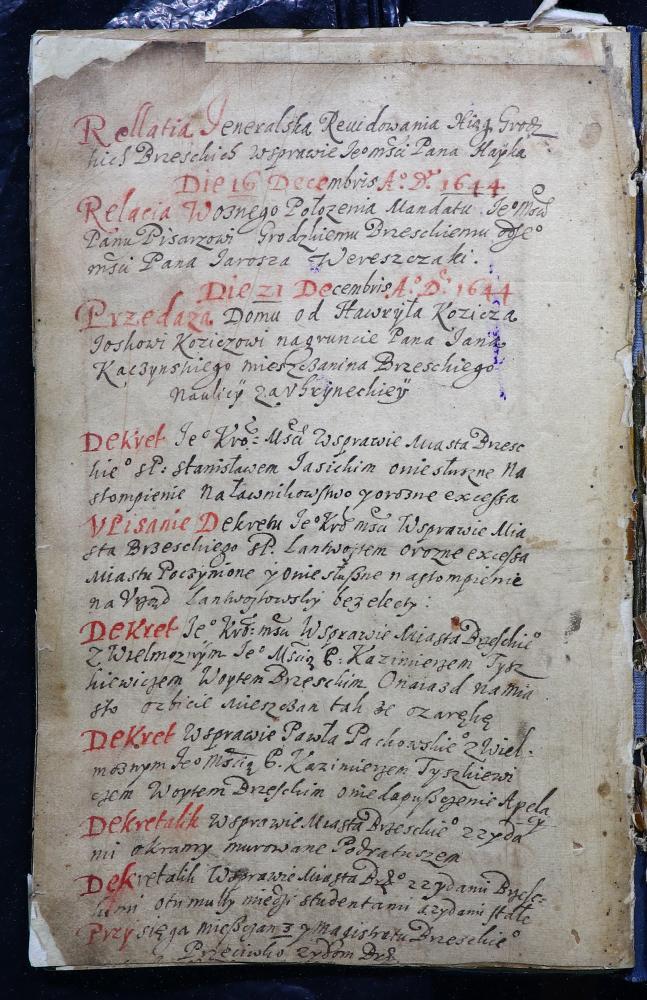 Rellatia Jeneralska Rewidowania Xiąg Grodz
kich Brzeskich wsprawie Jeo mści Pana Hayka
Die 16 Decembris Ao. Di. 1644
Relacia Woznego Położenia Mandatu Jeo Mści
Panu Pisarzowi Grodzkiemu Brzeskiemu od Jeo
mści Pana Jarosza Wereszczaki.
Die 21 Decembris Ao. Di. 1644
Przedaza Domu od Hawryła Kozicza
Joskowi Koziczowi nagruncie Pana Jana
Kączynskiego mieszczanina Brzeskiego
Naulicÿ zauhrÿnieckieÿ
Dekret Jeo Kro: Mści Wsprawie Miasta Brzesc
kieo sP: Stanisławem Jasickim oniesłuszne Na
stompienie Naławnikowstwo y orozne excessa
VPisanie Dekretu Jeo Kro mści Wsprawie Mia
sta Brzeskiego sP. Lantwojtem orozne excessa
Miastu Poczynione ÿ oniesłuszne nastompienie
na Vrząd Lantwoÿtowskÿ bez electÿ:
Dekret Jeo Kro: mści Wsprawie Miasta Brzeskieo
Z Wielmożnÿm Jeo Mścią P: Kazimierzem Tysz
kiewiczem Woÿtem Brzeskim Onaiazd namia
sto ozbicie Mieszczan tak że ozarękę
Dekret Wsprawie Pawła Pachowskieo z Wiel-
możnym Jeo Mścią P. Kazimierzem Tyszkiewi
czem Woÿtem Brzeskim oniedopuszczenie Apela
cÿ
Dekretalik Wsprawie Miasta Brzeskieo zzÿda
mi okramÿ murowane Podratuszem
Dekretalik Wsprawie Miasta Brzo zzÿdami Brzesc-
kimi otumulty międzÿ studentami azÿdami stałe
Przysięga mieszczan y magistratu Brzeskieo
Przeciwko zÿdom Brz.